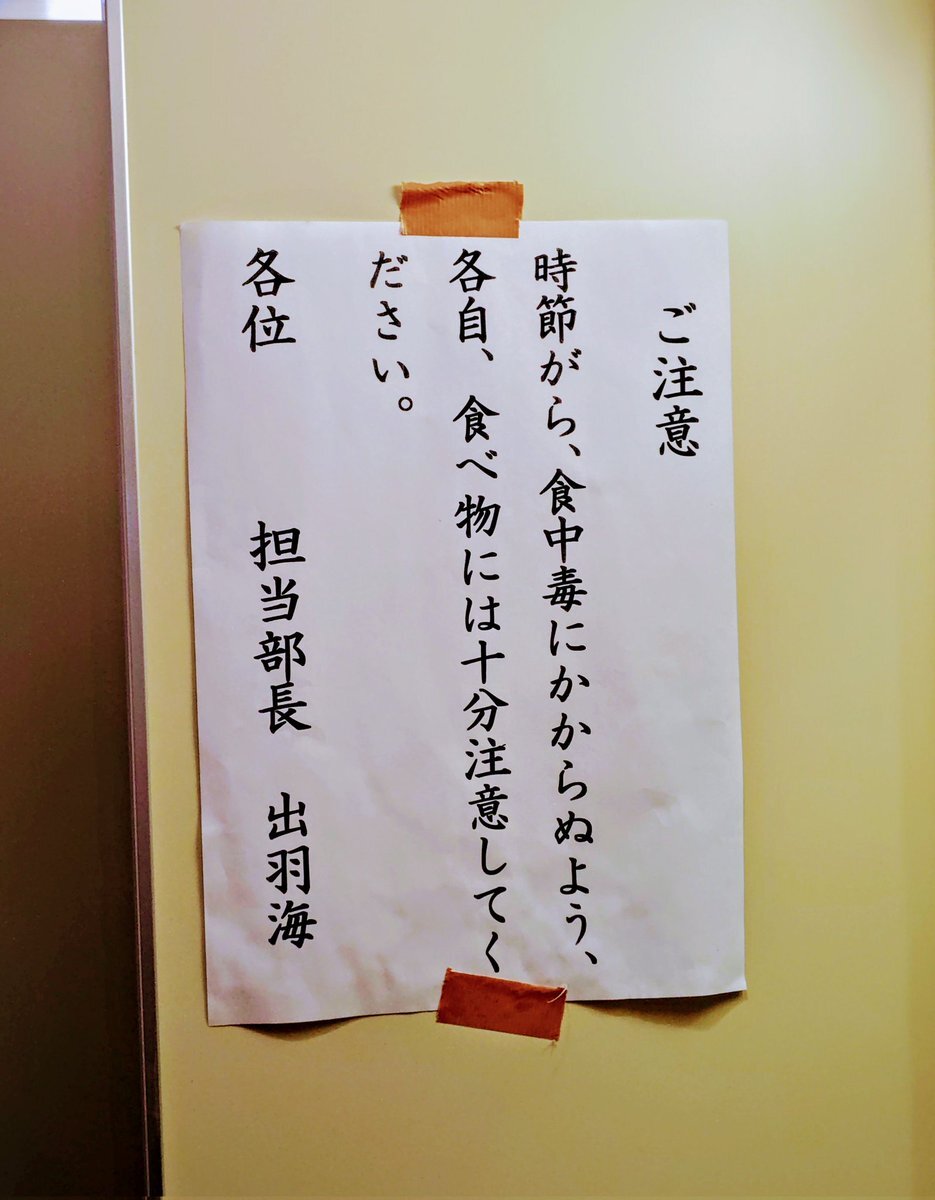 ご注意
時節がら、食中毒にかからぬよう、
各自、食べ物には十分注意してく
ださい。
各位　担当部長　出羽海